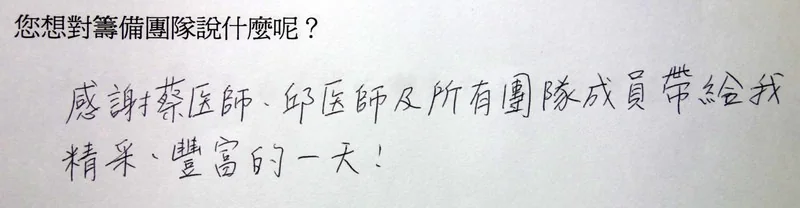 您想對籌備團隊說什麼呢？
感謝蔡医師、邱医師及所有團隊成員帶給我
精采、豐富的一天！